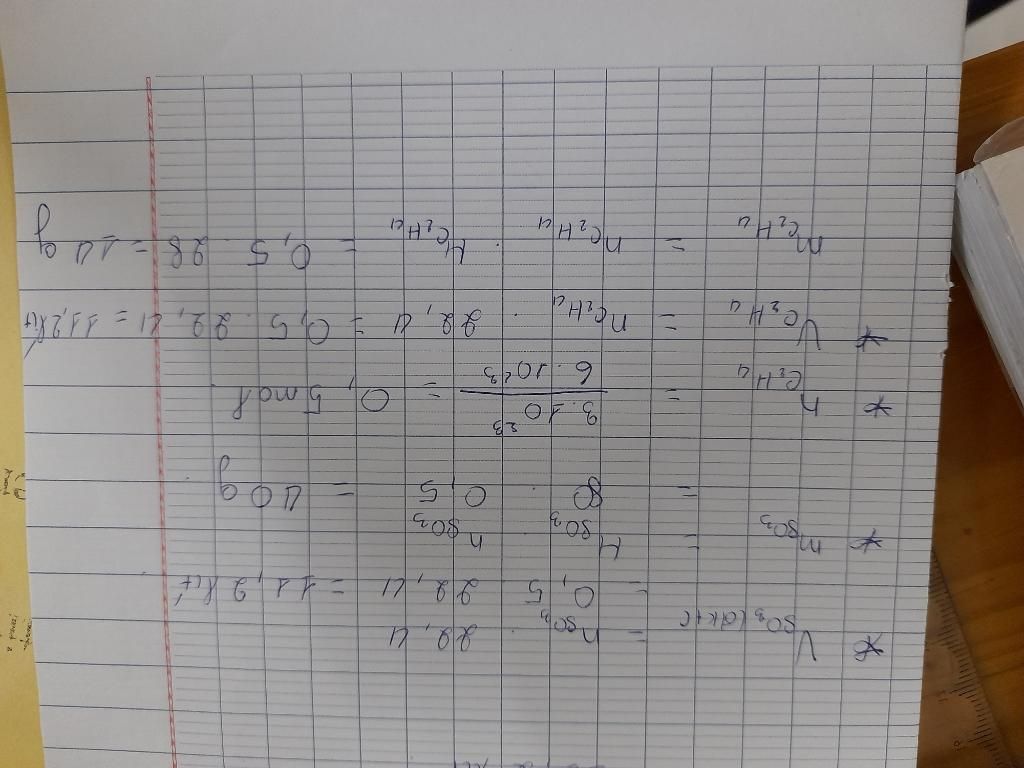 * V SO₃ (đktc) = n SO₃ . 22,4
= 0,5 . 22,4 = 11,2 lít
* m SO₃ = M SO₃ . n SO₃
= 80 . 0,5 = 40 g
* n C₂H₄ = 3 . 10²³ / 6 . 10²³ = 0,5 mol
* V C₂H₄ = n C₂H₄ . 22,4 = 0,5 . 22,4 = 11,2 lít
m C₂H₄ = n C₂H₄ . M C₂H₄ = 0,5 . 28 = 14 g